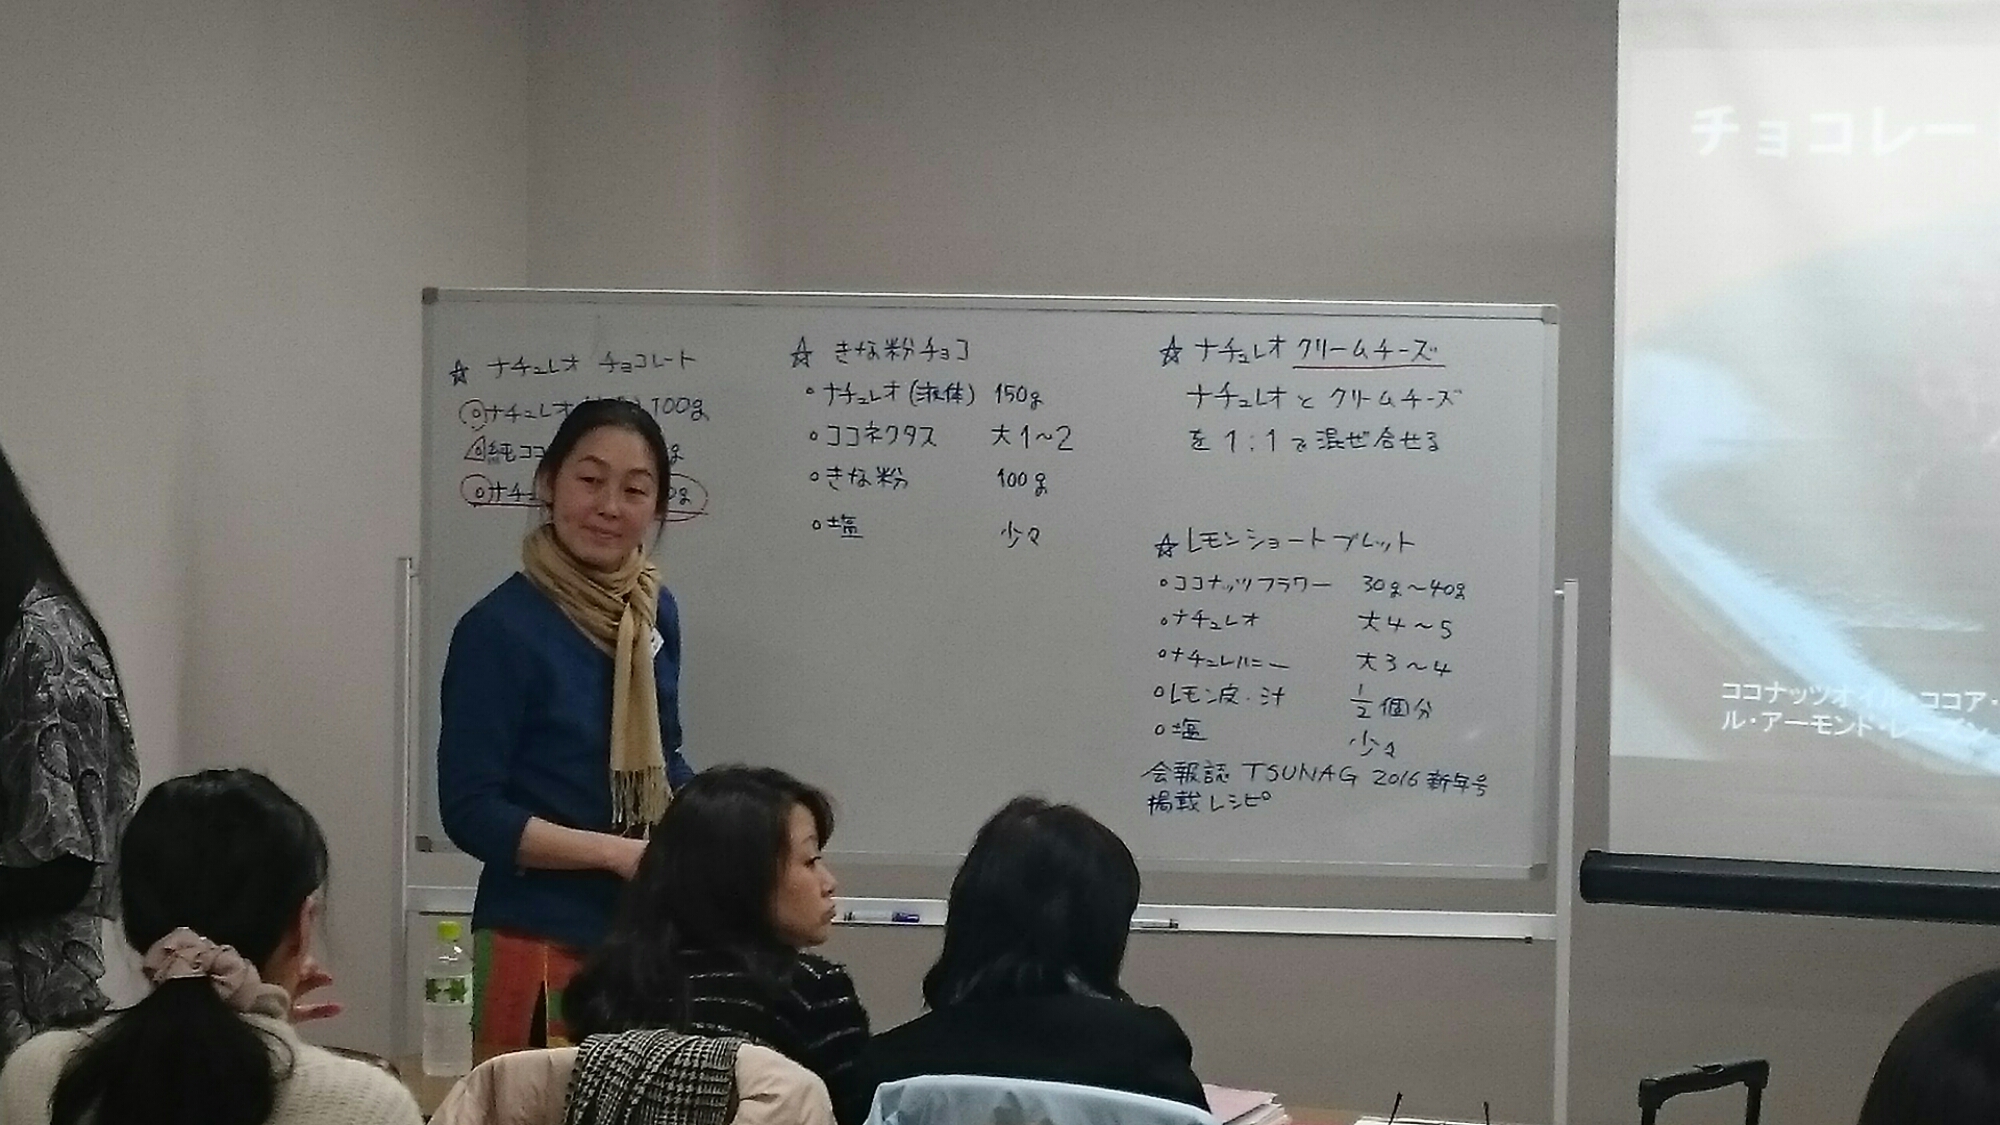 ☆ ナチュレオ チョコレート
○ナチュレオ 100g
純ココ g
○ナチュ 0g
☆ きな粉チョコ
○ナチュレオ(液体) 150g
○ココネクタス 大1~2
○きな粉 100g
○塩 少々
☆ ナチュレオ クリームチーズ
ナチュレオと クリームチーズ
を 1:1で混ぜ合せる
☆レモンショートブレット
○ココナッツフラワー 30g~40g
○ナチュレオ 大4~5
○ナチュレハニー 大3~4
○レモン皮・汁 1/2個分
○塩 少々
会報誌 TSUNAG 2016新年号
掲載レシピ
チョコレー
ココナッツオイル・ココア・
ル・アーモンド・レーズン